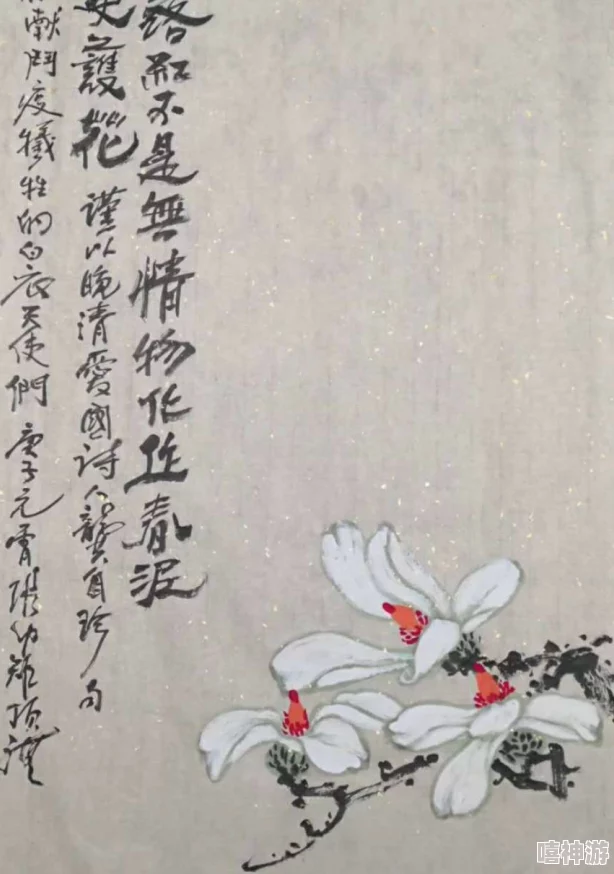 落紅不是無情物化作春泥
更護花 謹以晚清愛國詩人龔自珍句
獻鬥疫犧牲的白衣天使們 庚子元宵張幼矩頂禮
嘻神游